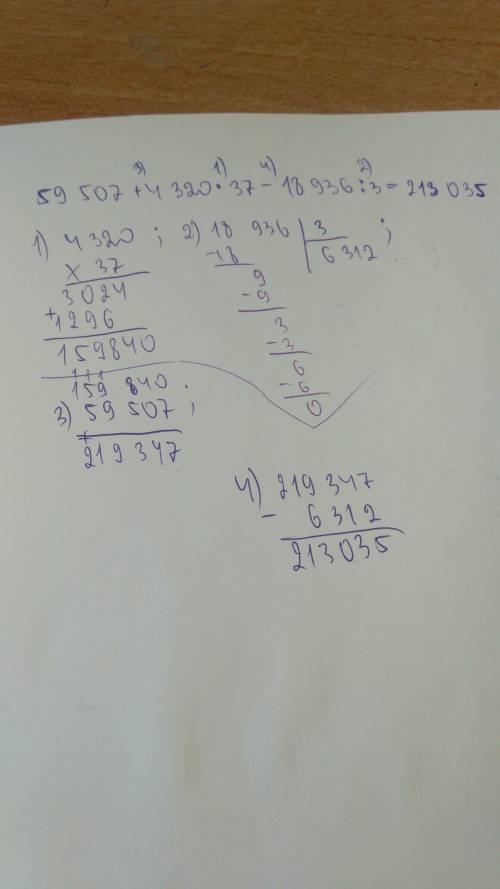 3) 1) 4) 2)
59 507 + 4 320 · 37 - 18 936 : 3 = 213 035
1) 4 320 ;
x 37
3024
+1296
159840
2) 18 936 | 3
6312 ;
-18
9
-9
3
-3
6
-6
0
111
159 840 .
3) 59 507 ;
+
219 347
4) 219 347
- 6 312
213035